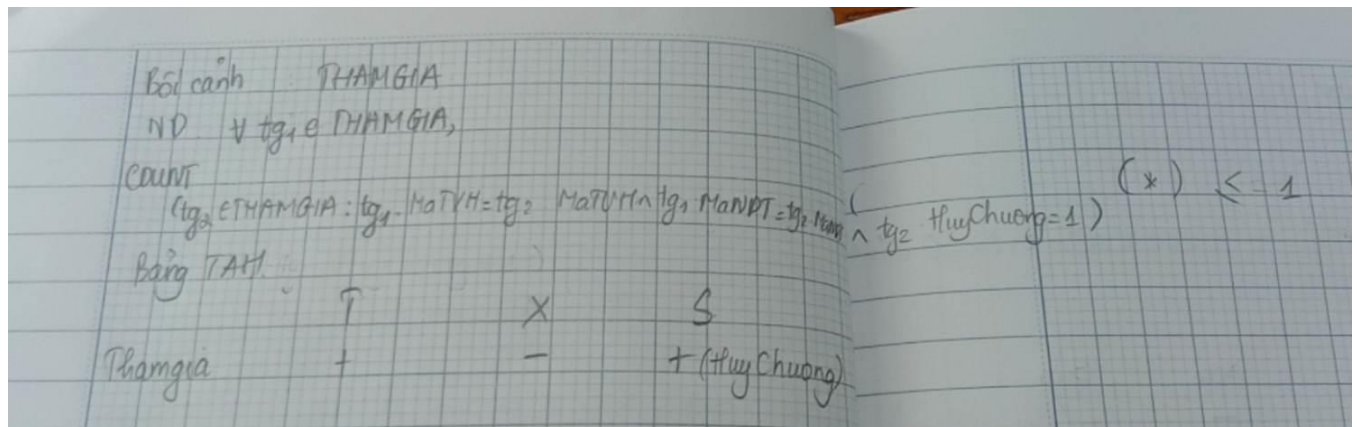 Bối cảnh THAMGIA
ND ∀ tg₁ ∈ THAMGIA,
COUNT
(tg₂ ∈ THAMGIA : tg₁. MaTVH = tg₂ MaTVH ∧ tg₁ MaNDT = tg₂ ∧ tg₂ HuyChuong = 1)
(*) <= 1
Bảng TAH.
T X S
Thamgia + - + (HuyChuong)